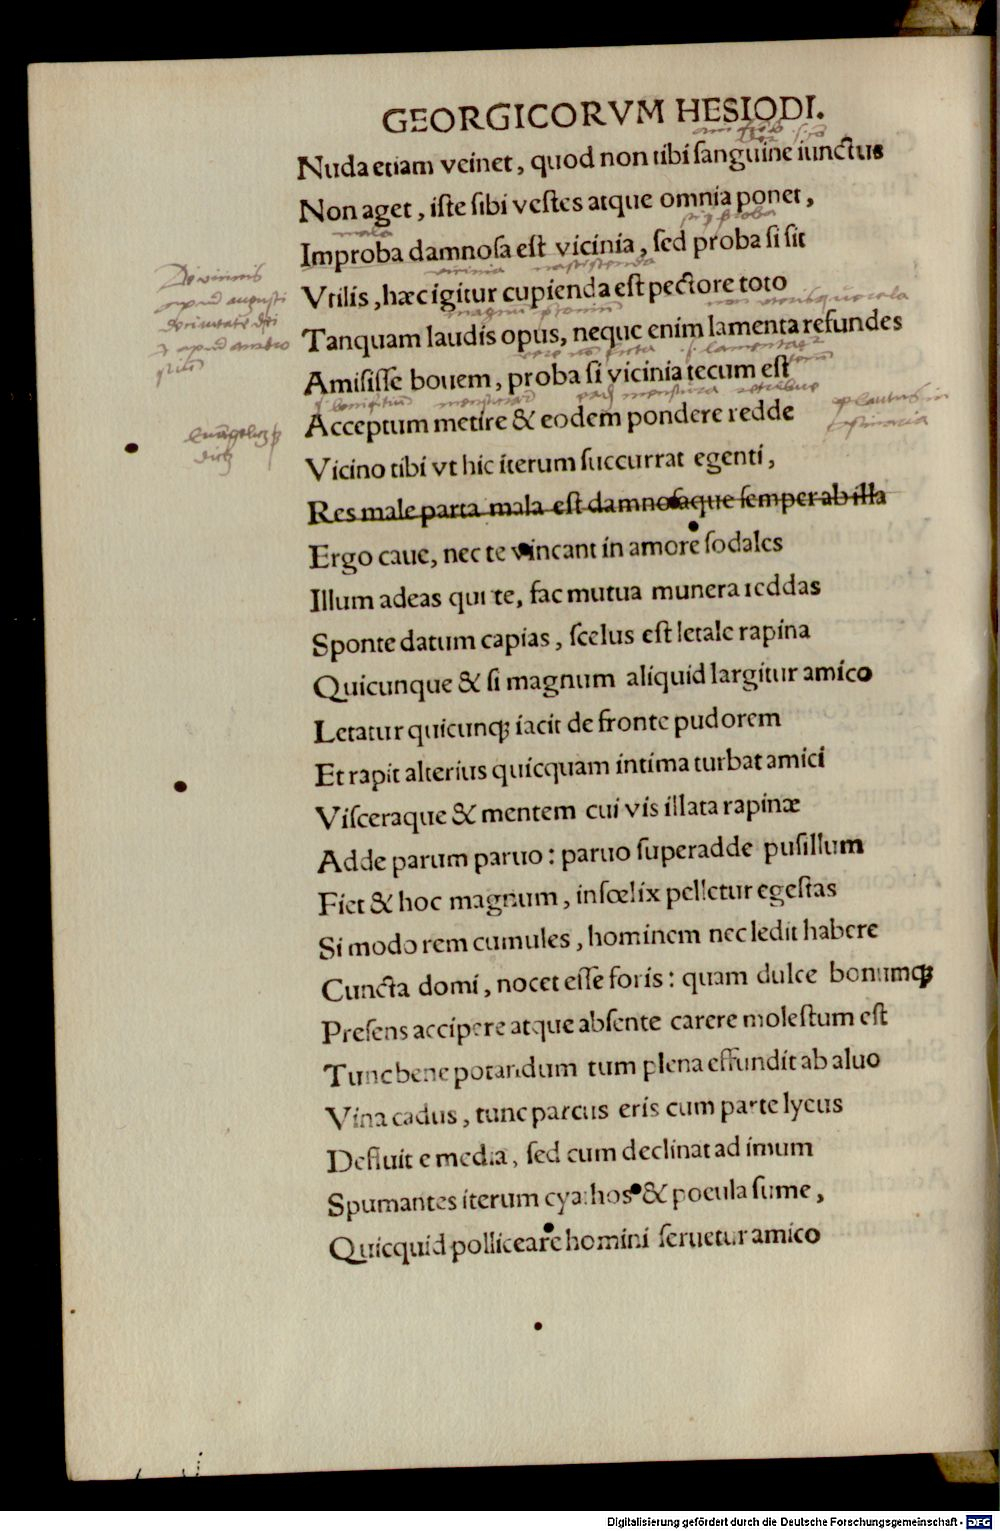 GEORGICORVM HESIODI.
Nuda etiam veinet, quod non tibi ſanguine iunctus
Non aget, iſte ſibi veſtes atque omnia ponet,
mala
Improba damnoſa eſt vicinia, ſed proba ſi ſit
vicinia
Vtilis, hæc igitur cupienda eſt pectore toto
Tanquam laudis opus, neque enim lamenta refundes
Amiſiſſe bouem, proba ſi vicinia tecum eſt
Acceptum metire & eodem pondere redde
Vicino tibi vt hic iterum ſuccurrat egenti,
Res male parta mala eſt damnoſaque ſemper ab illa
Ergo caue, nec te vincant in amore ſodales
Illum adeas qui te, fac mutua munera reddas
Sponte datum capias, ſcelus eſt letale rapina
Quicunque & ſi magnum aliquid largitur amico
Letatur quicunqꝫ iacit de fronte pudorem
Et rapit alterius quicquam intima turbat amici
Viſceraque & mentem cui vis illata rapinæ
Adde parum paruo: paruo ſuperadde puſillum
Fiet & hoc magnum, inſœlix pelletur egeſtas
Si modo rem cumules, hominem nec ledit habere
Cuncta domi, nocet eſſe foris: quam dulce bonumqꝫ
Preſens accipere atque abſente carere moleſtum eſt
Tunc bene potandum tum plena effundit ab aluo
Vina cadus, tunc parcus eris cum parte lyeus
Defluit e media, ſed cum declinat ad imum
Spumantes iterum cyathos & pocula ſume,
Quicquid polliceare homini ſeruetur amico
Digitalisierung gefördert durch die Deutsche Forschungsgemeinschaft - DFG